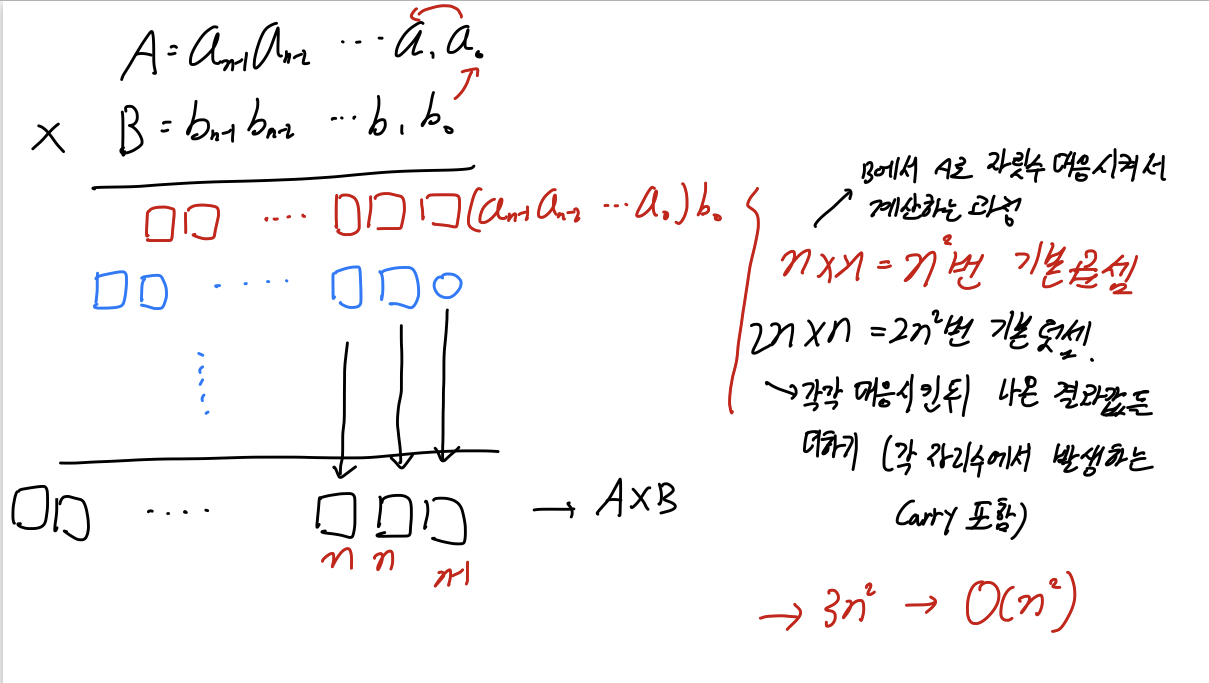 A = aₙ₋₁aₙ₋₂ ··· a₁a₀
× B = bₙ₋₁bₙ₋₂ ··· b₁b₀
□□ ···· □□□(aₙ₋₁aₙ₋₂ ··· a₀)b₀
□□ ····· □□○
□□ ···· □□□ → A×B
n n n-1
B에서 A로 자릿수 대응시켜서
계산하는 과정
n×n = n²번 기본곱셈
2n×n = 2n²번 기본덧셈.
→ 각각 대응시킨뒤 나온 결과값들
더하기 (각 자리수에서 발생하는
Carry 포함)
→ 3n² → O(n²)